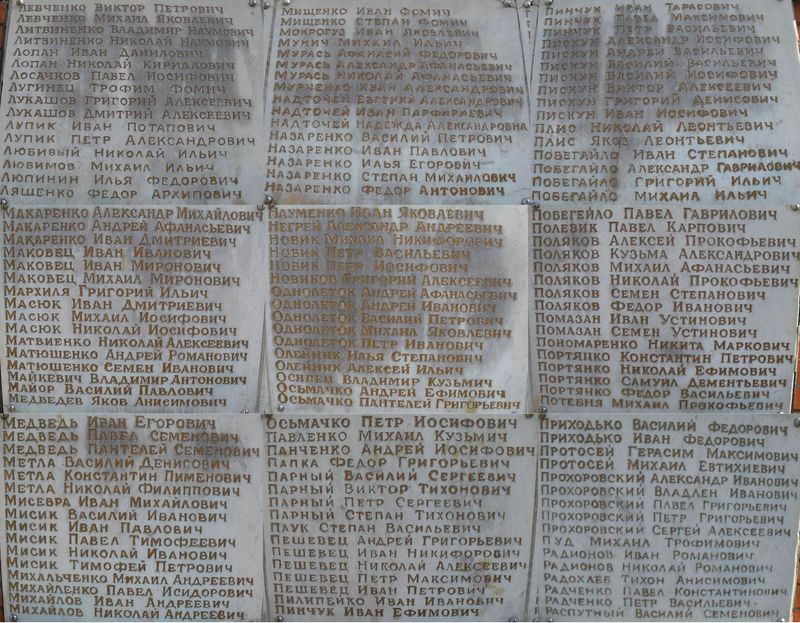 Левченко Виктор Петрович
Левченко Михаил Яковлевич
Литвиненко Владимир Наумович
Литвиненко Николай Наумович
Лопан Иван Данилович
Лопан Николай Кириллович
Лосачков Павел Иосифович
Лугинец Трофим Фомич
Лукашов Григорий Алексеевич
Лукашов Дмитрий Алексеевич
Лупик Иван Потапович
Лупик Петр Александрович
Любивый Николай Ильич
Любимов Михаил Ильич
Люпинин Илья Федорович
Ляшенко Федор Архипович
Макаренко Александр Михайлович
Макаренко Андрей Афанасьевич
Макаренко Иван Дмитриевич
Маковец Иван Иванович
Маковец Иван Миронович
Маковец Михаил Миронович
Мархиля Григорий Ильич
Масюк Иван Дмитриевич
Масюк Михаил Иосифович
Масюк Николай Иосифович
Матвиенко Николай Алексеевич
Матюшенко Андрей Романович
Матюшенко Семен Иванович
Майкевич Владимир Антонович
Майор Василий Павлович
Медведев Яков Анисимович
Медведь Иван Егорович
Медведь Павел Семенович
Медведь Пантелей Семенович
Метла Василий Денисович
Метла Константин Пименович
Метла Николай Филиппович
Мисевра Иван Михайлович
Мисик Василий Иванович
Мисик Иван Павлович
Мисик Павел Тимофеевич
Мисик Николай Иванович
Мисик Тимофей Петрович
Михальченко Михаил Андреевич
Михайленко Павел Исидорович
Михайлов Иван Андреевич
Михайлов Николай Андреевич
Мищенко Иван Фомич
Мищенко Степан Фомич
Мокрогуз Иван Яковлевич
Мунич Михаил Ильич
Мурась Афанасий Федорович
Мурась Александр Афанасьевич
Мурась Николай Афанасьевич
Мурченко Иван Александрович
Надточей Евгений Александрович
Надточей Иван Парфириевич
Надточей Надежда Александровна
Назаренко Василий Петрович
Назаренко Иван Павлович
Назаренко Илья Егорович
Назаренко Степан Михайлович
Назаренко Федор Антонович
Науменко Иван Яковлевич
Негрей Александр Андреевич
Новик Михаил Никифорович
Новик Петр Васильевич
Новик Петр Иосифович
Новиков Григорий Алексеевич
Однолеток Андрей Афанасьевич
Однолеток Андрей Иванович
Однолеток Василий Петрович
Однолеток Михаил Яковлевич
Однолеток Петр Иванович
Олейник Илья Степанович
Олейник Алексей Ильич
Осипец Владимир Кузьмич
Осьмачко Андрей Ефимович
Осьмачко Пантелей Григорьевич
Осьмачко Петр Иосифович
Павленко Михаил Кузьмич
Панченко Андрей Иосифович
Папка Федор Григорьевич
Парный Василий Сергеевич
Парный Виктор Тихонович
Парный Петр Сергеевич
Парный Степан Тихонович
Паук Степан Васильевич
Пешевец Андрей Григорьевич
Пешевец Иван Никифорович
Пешевец Николай Алексеевич
Пешевец Петр Максимович
Пешевец Иван Петрович
Пилипейко Иван Иванович
Пинчук Иван Ефимович
Пинчук Иван Тарасович
Пинчук Павел Максимович
Пинчук Петр Васильевич
Пискун Александр Иосифович
Пискун Андрей Васильевич
Пискун Василий Васильевич
Пискун Василий Иосифович
Пискун Виктор Алексеевич
Пискун Григорий Денисович
Пискун Иван Иосифович
Плис Николай Леонтьевич
Плис Яков Леонтьевич
Побегайло Иван Степанович
Побегайло Александр Гаврилович
Побегайло Григорий Ильич
Побегайло Михаил Ильич
Побегейло Павел Гаврилович
Полевик Павел Карпович
Поляков Алексей Прокофьевич
Поляков Кузьма Александрович
Поляков Михаил Афанасьевич
Поляков Николай Прокофьевич
Поляков Семен Степанович
Поляков Федор Иванович
Помазан Иван Устинович
Помазан Семен Устинович
Пономаренко Никита Маркович
Портянко Константин Петрович
Портянко Николай Ефимович
Портянко Самуил Дементьевич
Портянко Федор Васильевич
Потебня Михаил Прокофьевич
Приходько Василий Федорович
Приходько Иван Федорович
Протосей Герасим Максимович
Протосей Михаил Евтихиевич
Прохоровский Александр Иванович
Прохоровский Владлен Иванович
Прохоровский Павел Григорьевич
Прохоровский Петр Григорьевич
Прохоровский Сергей Алексеевич
Пуд Михаил Трофимович
Радионов Иван Романович
Радионов Николай Романович
Радохлеб Тихон Анисимович
Радченко Павел Константинович
Радченко Петр Васильевич
Распутный Василий Семенович